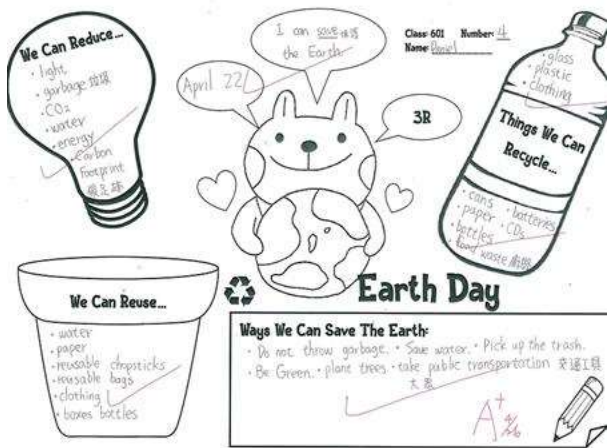 We Can Reduce...
• light
• garbage 垃圾
• CO2
• water
• energy
• Carbon
Footprint
碳足跡
April 22
I can save 拯救
the Earth
3R
Class: 601 Number: 4
Name: Daniel
• glass
• plastic
• clothing
Things We Can
Recycle...
• cans • batteries
• paper • CDs
• bottles
• food waste 廚餘
We Can Reuse...
• water
• paper
• reusable chopsticks
• reusable bags
• clothing
• boxes bottles
Earth Day
Ways We Can Save The Earth:
• Do not throw garbage. • Save water. • Pick up the trash.
• Be Green. • plant trees • take public transportation 交通工具
大眾
A+
4/26